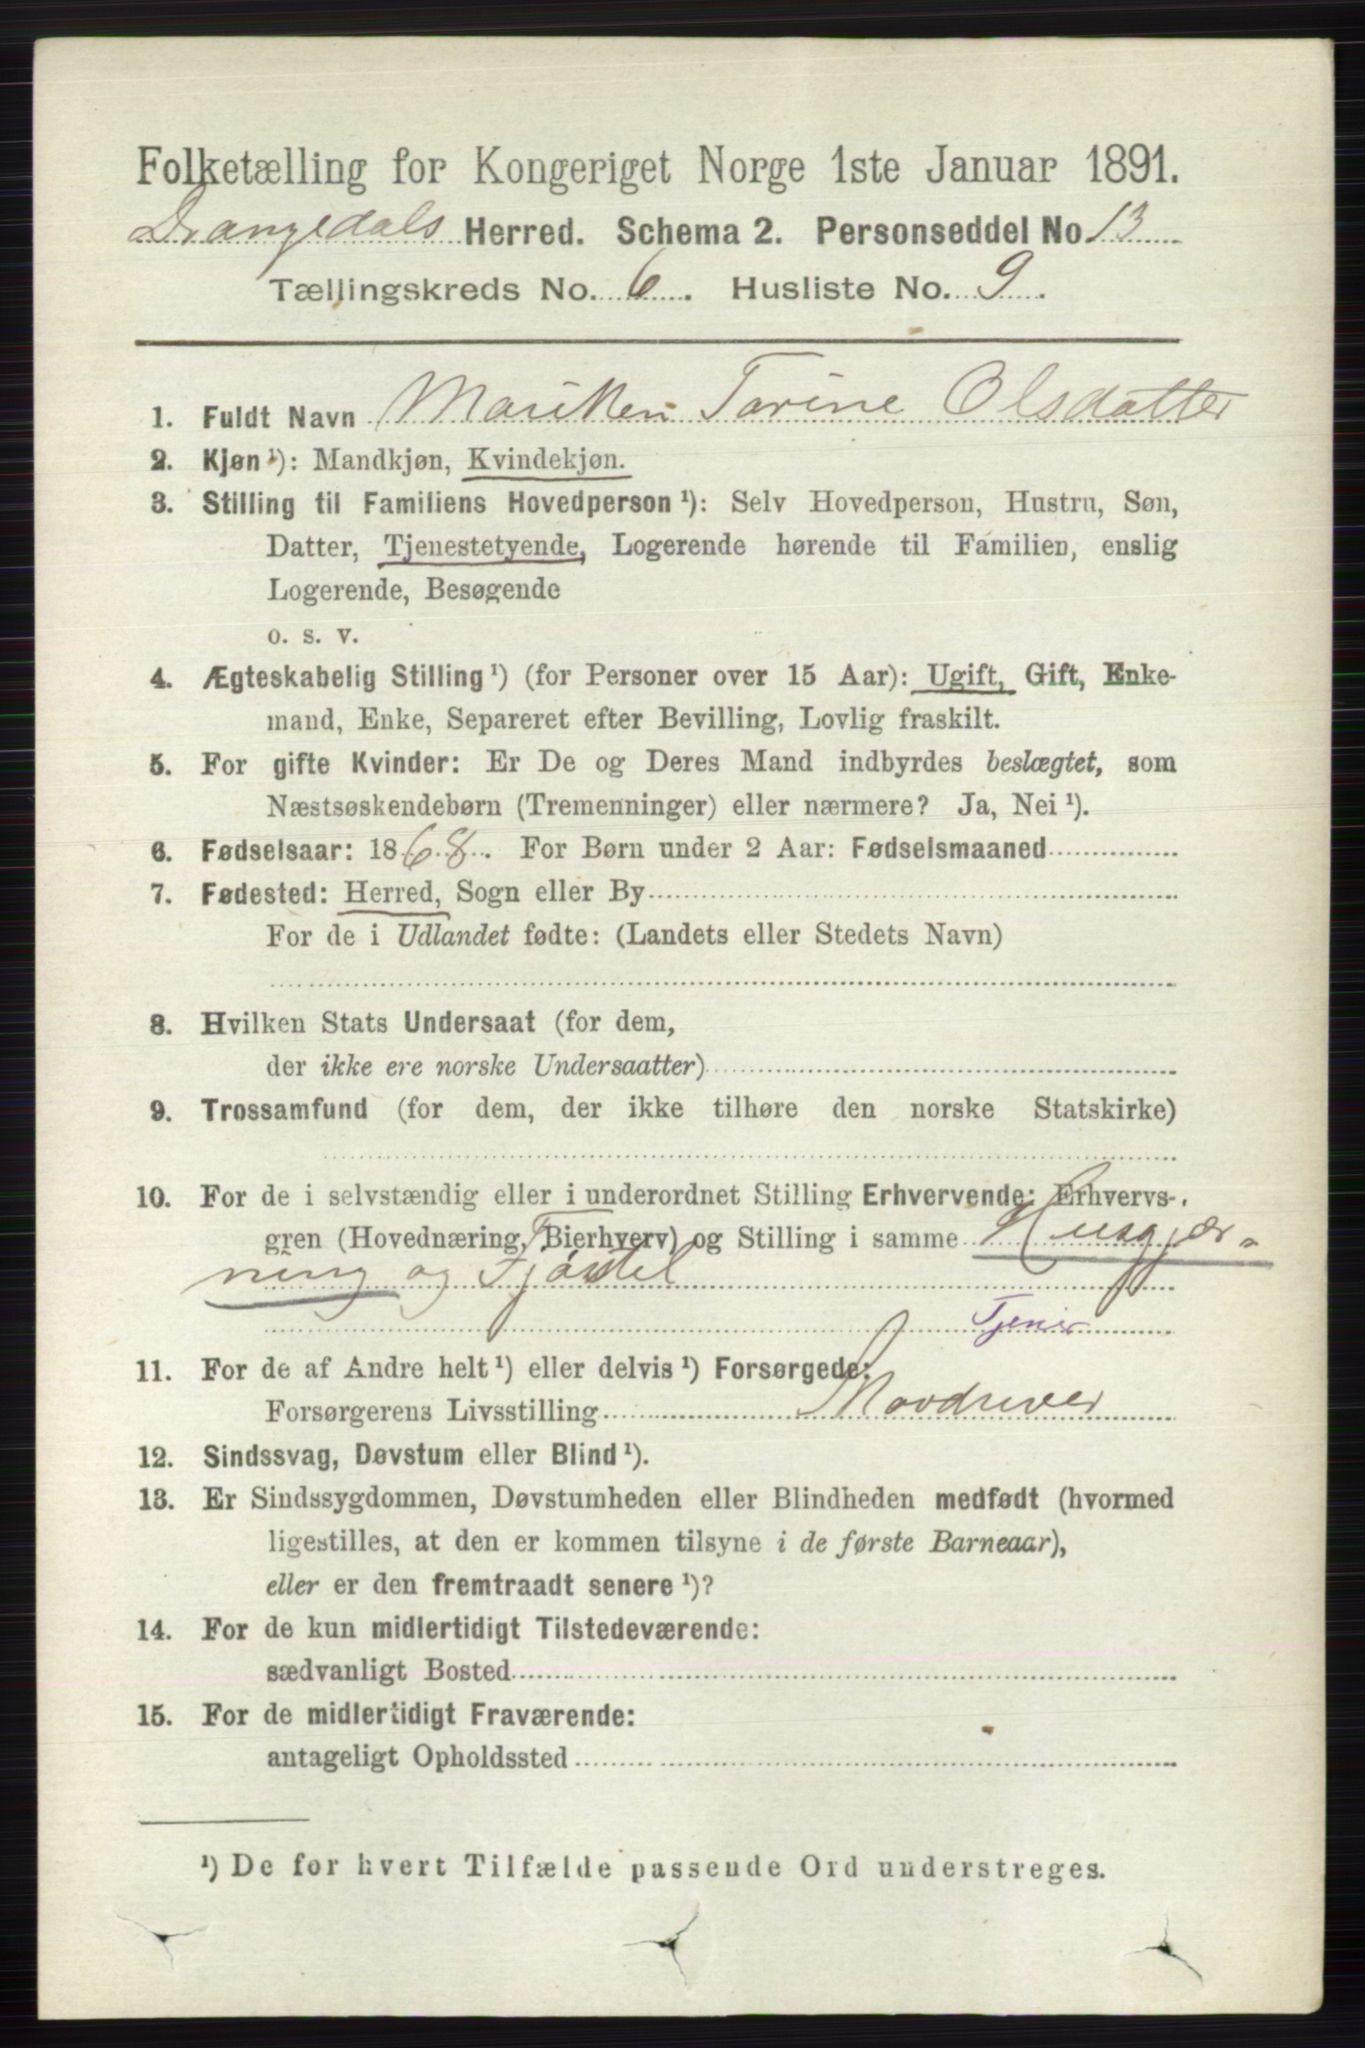 Folketælling for Kongeriget Norge 1ste Januar 1891.
Drangedals Herred. Schema 2. Personseddel No 13
Tællingskreds No. 6. Husliste No. 9.
1. Fuldt Navn Mariken Torine Olsdatter
2. Kjøn ¹): Mandkjøn, Kvindekjøn.
3. Stilling til Familiens Hovedperson ¹): Selv Hovedperson, Hustru, Søn,
Datter, Tjenestetyende, Logerende hørende til Familien, enslig
Logerende, Besøgende
o. s. v.
4. Ægteskabelig Stilling ¹) (for Personer over 15 Aar): Ugift, Gift, Enke-
mand, Enke, Separeret efter Bevilling, Lovlig fraskilt.
5. For gifte Kvinder: Er De og Deres Mand indbyrdes beslægtet, som
Næstsøskendebørn (Tremenninger) eller nærmere? Ja, Nei ¹).
6. Fødselsaar: 1868. For Børn under 2 Aar: Fødselsmaaned
7. Fødested: Herred, Sogn eller By
For de i Udlandet fødte: (Landets eller Stedets Navn)
8. Hvilken Stats Undersaat (for dem,
der ikke ere norske Undersaatter)
9. Trossamfund (for dem, der ikke tilhøre den norske Statskirke)
10. For de i selvstændig eller i underordnet Stilling Erhvervende: Erhvervs-
gren (Hovednæring, Bierhverv) og Stilling i samme Husgjær-
ning og Fjøsstel
Tjener
11. For de af Andre helt ¹) eller delvis ¹) Forsørgede:
Forsørgerens Livsstilling
12. Sindssvag, Døvstum eller Blind ¹).
13. Er Sindssygdommen, Døvstumheden eller Blindheden medfødt (hvormed
ligestilles, at den er kommen tilsyne i de første Barneaar),
eller er den fremtraadt senere ¹)?
14. For de kun midlertidigt Tilstedeværende:
sædvanligt Bosted
15. For de midlertidigt Fraværende:
antageligt Opholdssted
¹) De for hvert Tilfælde passende Ord understreges.